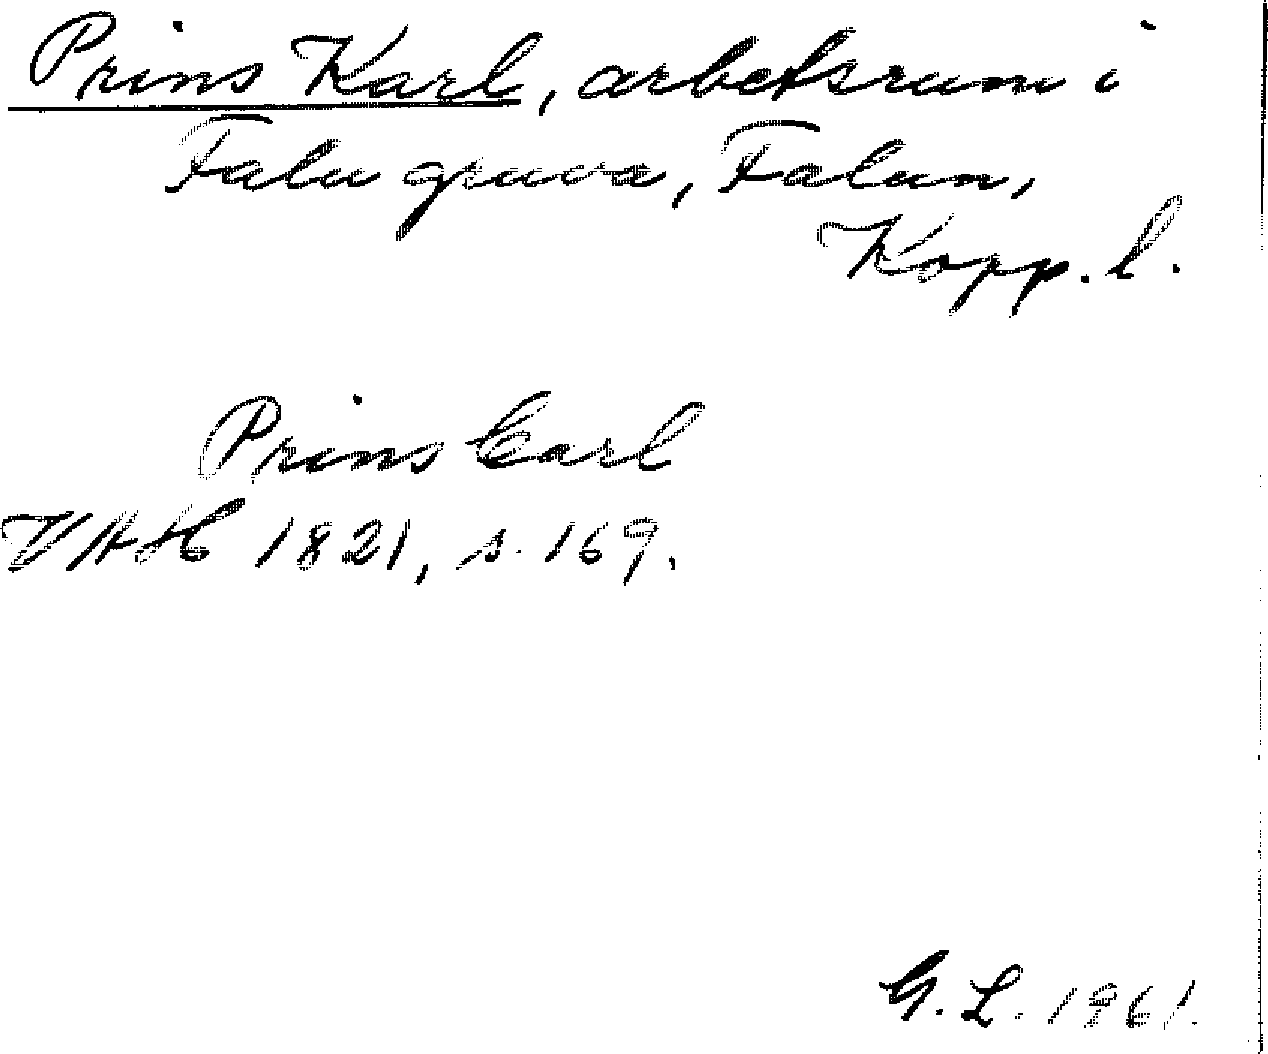 Prins Karl, arbetsrum i
Falu gruva, Falun,
Kopp. l.
Prins Carl
VAH 1821, s. 169.
G. L. 1961.